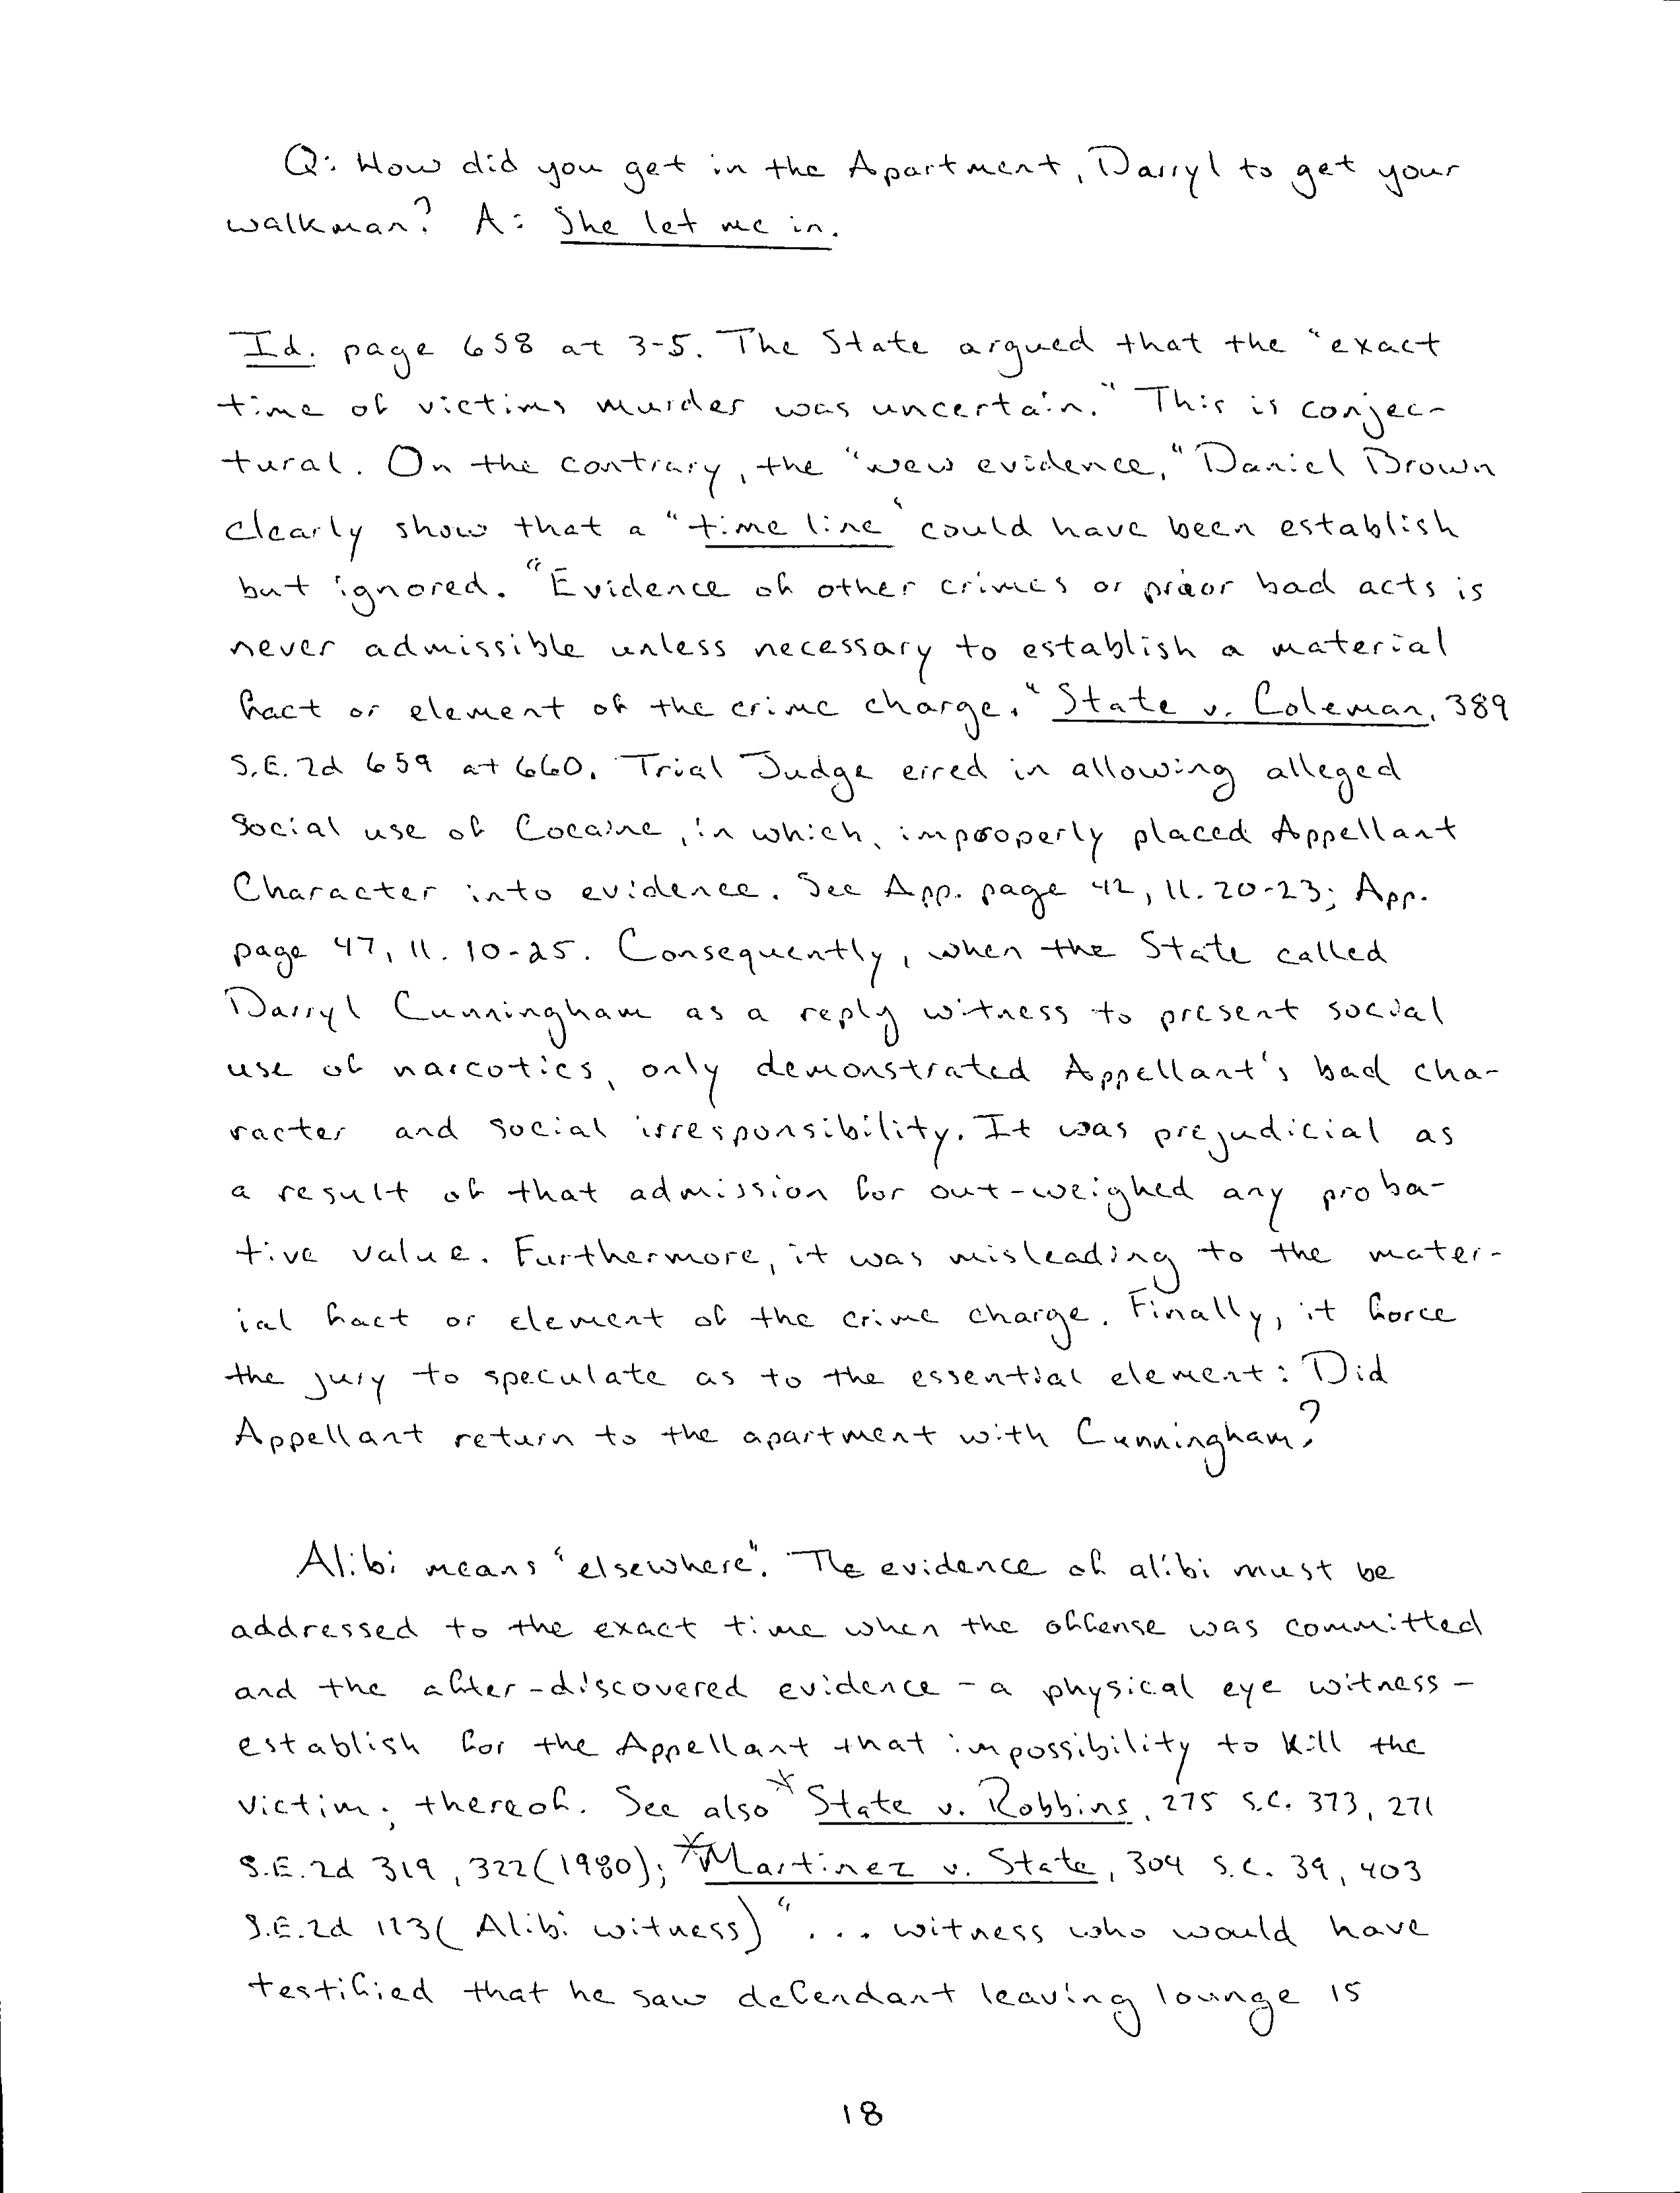 Q: How did you get in the Apartment, Darryl to get your
walkman? A: She let me in.
Id. page 658 at 3-5. The State argued that the "exact
time of victims murder was uncertain." This is conjec-
tural. On the contrary, the "new evidence," Daniel Brown
clearly show that a "time line" could have been establish
but ignored. "Evidence of other crimes or prior bad acts is
never admissible unless necessary to establish a material
fact or element of the crime charge." State v. Coleman, 389
S.E. 2d 659 at 660. Trial Judge erred in allowing alleged
Social use of Cocaine, in which, improperly placed Appellant
Character into evidence. See App. page 42, ll. 20-23; App.
page 47, ll. 10-25. Consequently, when the State called
Darryl Cunningham as a reply witness to present social
use of narcotics, only demonstrated Appellant's bad cha-
racter and social irresponsibility. It was prejudicial as
a result of that admission for out-weighed any proba-
tive value. Furthermore, it was misleading to the mater-
ial fact or element of the crime charge. Finally, it force
the jury to speculate as to the essential element: Did
Appellant return to the apartment with Cunningham?
Alibi means "elsewhere". The evidence of alibi must be
addressed to the exact time when the offense was committed
and the after-discovered evidence - a physical eye witness -
establish for the Appellant that impossibility to kill the
victim; thereof. See also *State v. Robbins, 275 S.C. 373, 271
S.E. 2d 319, 322(1980); *Martinez v. State, 304 S.C. 39, 403
S.E. 2d 113( Alibi witness) "... witness who would have
testified that he saw defendant leaving lounge 15
18